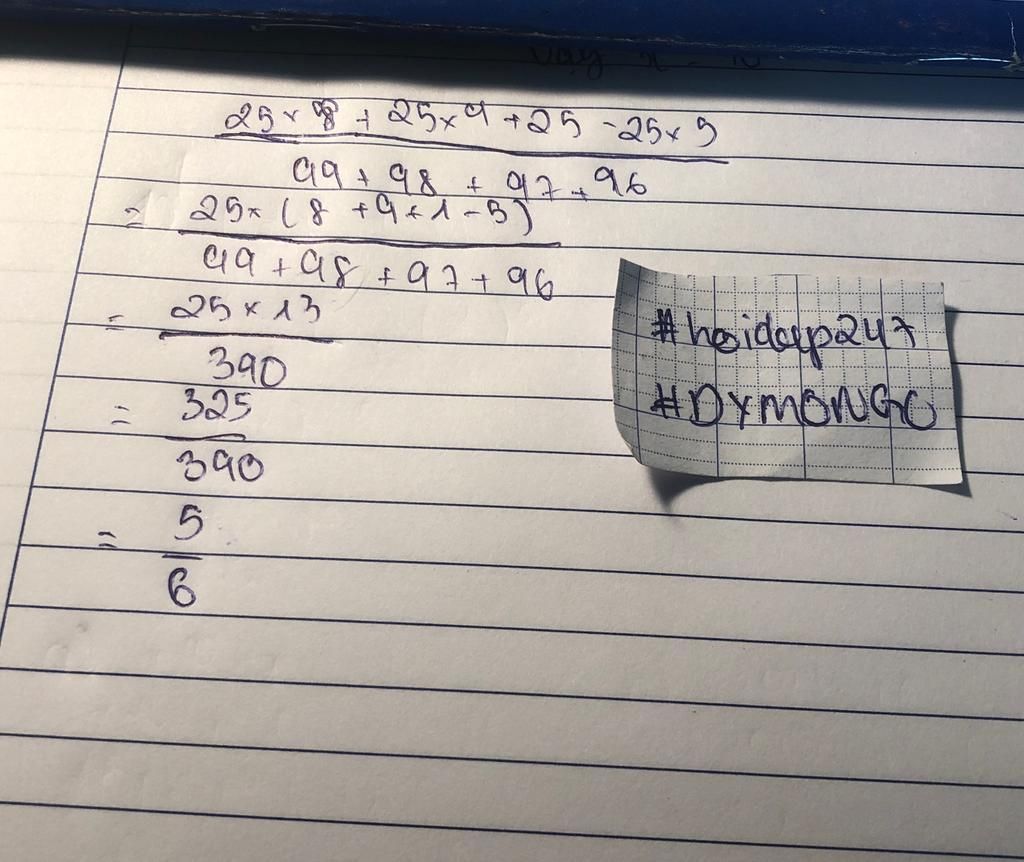 25 × 8 + 25 × 9 + 25 - 25 × 5
99 + 98 + 97 + 96
= 25 × (8 + 9 + 1 - 5)
99 + 98 + 97 + 96
= 25 × 13
390
= 325
390
= 5
6
#hoidap247
#DYMONGO